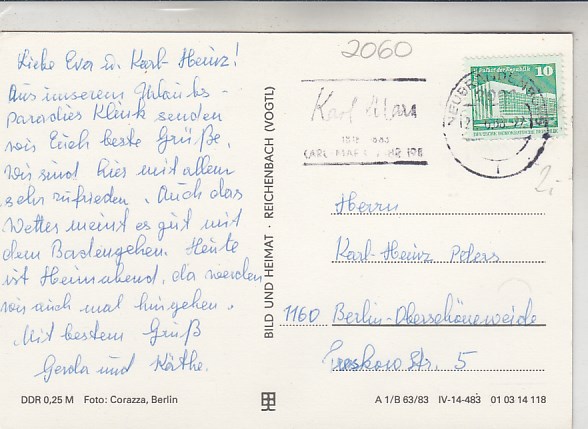 2060
Liebe Eva u. Karl-Heinz!
Aus unserem Urlaubs-
paradies Klink senden
wir Euch beste Grüße.
Wir sind hier mit allem
sehr zufrieden. Auch das
Wetter meint es gut mit
dem Badengehen. Heute
ist Heimabend, da werden
wir auch mal hingehen.
Mit bestem Gruß
Gerda und Käthe.
DDR 0,25 M Foto: Corazza, Berlin
BILD UND HEIMAT · REICHENBACH (VOGTL)
Karl Marx
KARL-MARX-JAHR 198
NEUBRANDENBURG
Palast der Republik 10
DEUTSCHE DEMOKRATISCHE REPUBLIK
2,-
Herrn
Karl-Heinz Peters
1160 Berlin-Oberschöneweide
Treskow Str. 5
A 1/B 63/83 IV-14-483 01 03 14 118